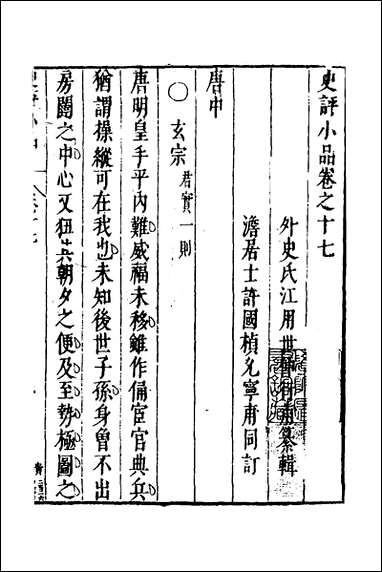 史評小品卷之十七
外史氏江用世仲行甫纂輯
澹居士許國楨允寧甫同訂
唐中
○玄宗 君實一則
唐明皇手平內難威福未移雖作俑宦官典兵
猶謂操縱可在我也未知後世子孫身曾不出
房闥之中心又狃其朝夕之便及至勢極圖之